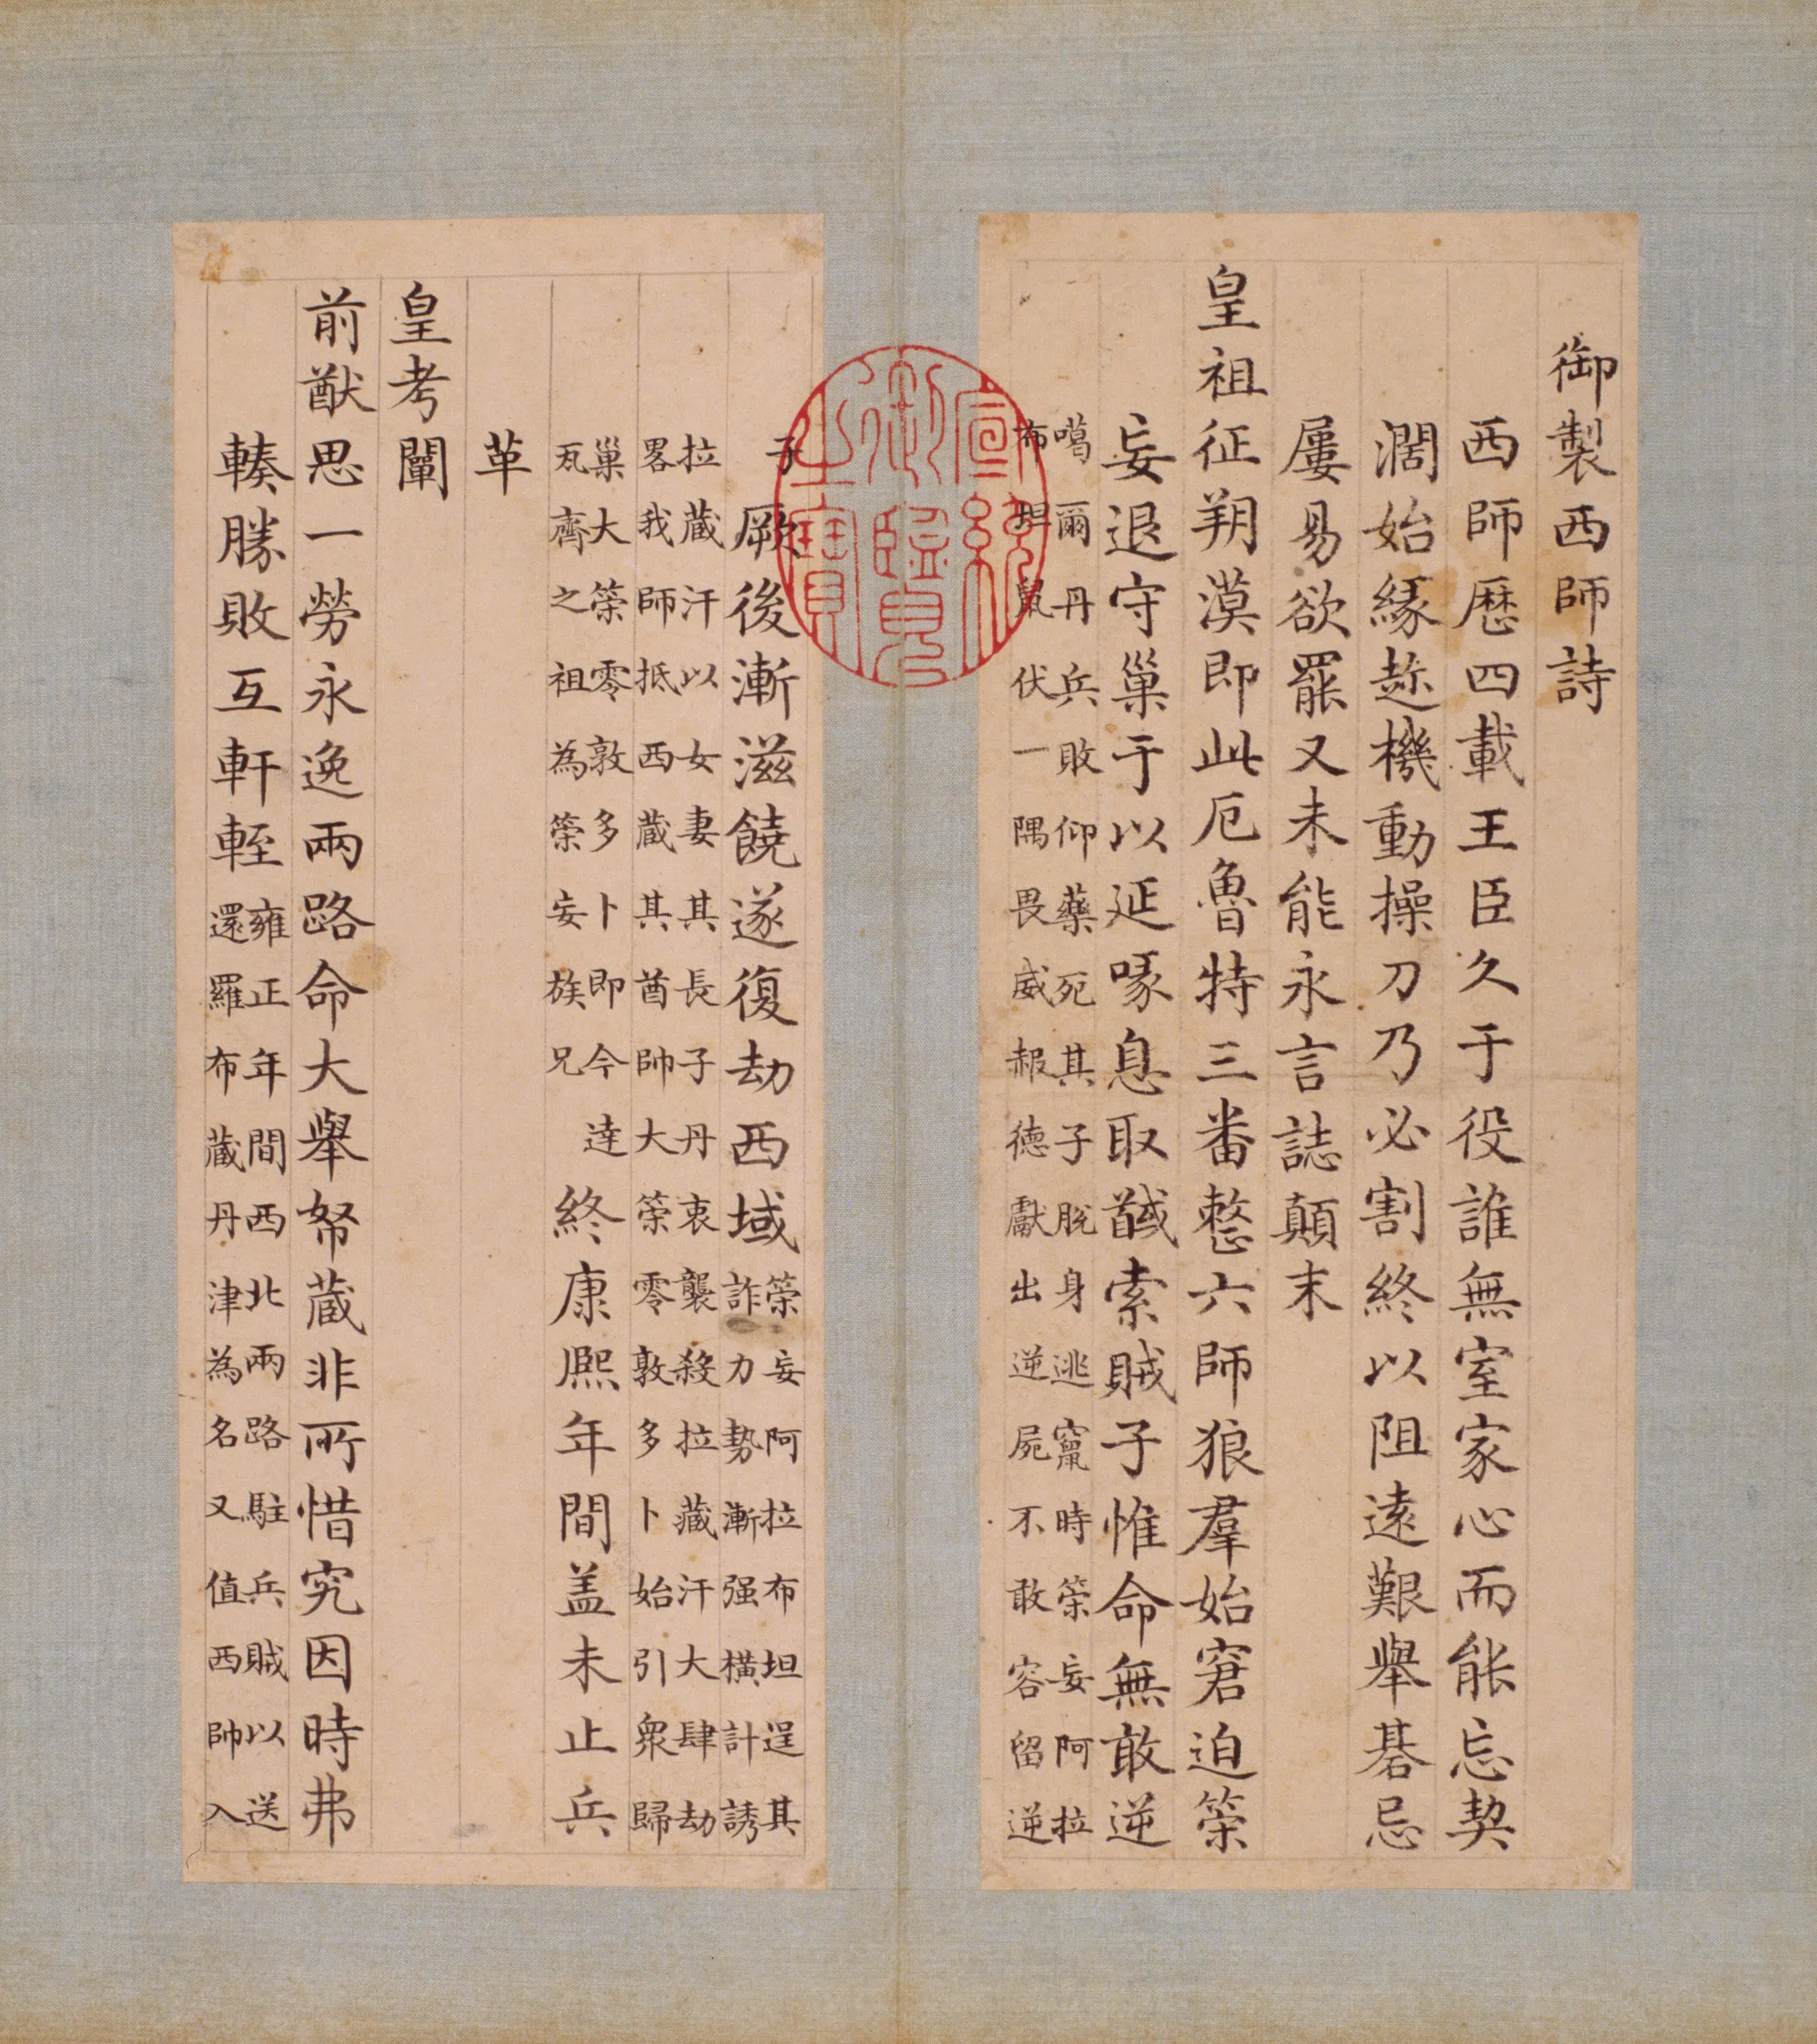 御製西師詩
西師厯四載王臣久于役誰無室家心而能忘契
濶始緣趂機動操刀乃必割終以阻遠艱舉碁忌
屢易欲罷又未能永言誌顛末
皇祖征朔漠即此厄魯特三番整六師狼羣始窘迫策
妄退守巢于以延喙息取馘索賊子惟命無敢逆
噶爾丹兵敗仰藥死其子脫身逃竄時策妄阿拉
布坦鼠伏一隅畏威赧德獻出逆屍不敢容留逆
宣統御覽之寶
子
厥後漸滋饒遂復劫西域
策妄阿拉布坦逞其
詐力勢漸强橫計誘
拉藏汗以女妻其長子丹衷襲殺拉藏汗大肆劫
畧我師抵西藏其酋帥大策零敦多卜始引衆歸
巢大策零敦多卜即今達
瓦齊之祖為策妄族兄
終康熙年間盖未止兵
革
皇考闡
前猷思一勞永逸兩路命大舉帑藏非所惜究因時弗
輳勝敗互軒輊
雍正年間西北兩路駐兵賊以送
還羅布藏丹津為名又值西帥入